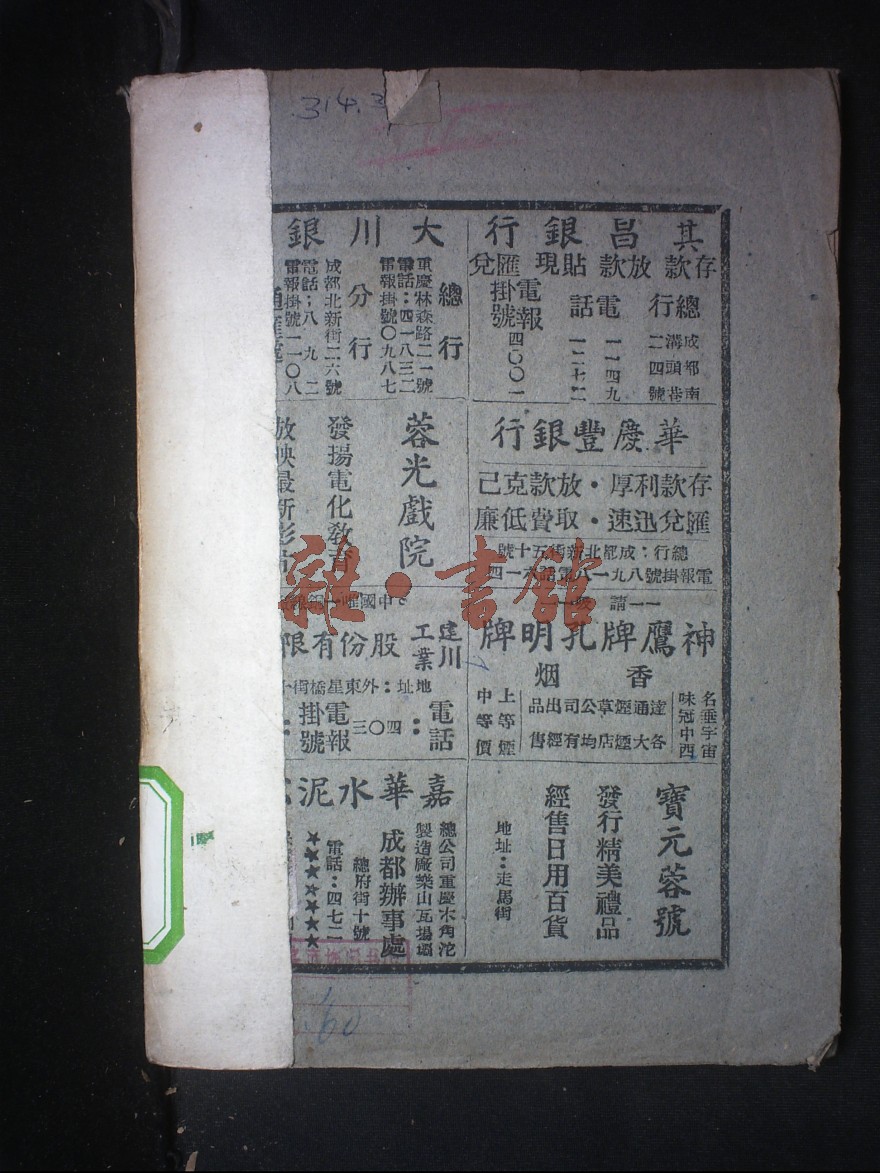 314.3
其昌銀行
存款 放款 貼現 匯兌
總行
成都南
溝頭巷
二四號
電話
一一四九
一二七二
電報掛號
四〇〇一
大川銀
總行
重慶林森路二一號
電話：四一八三二
電報掛號〇九八七
分行
成都北新街二六號
電話；八九二
電報掛號一一〇八
華慶豐銀行
存款利厚・放款克己
匯兌迅速・取費低廉
總行：成都北新街五十號
電報掛號八九一八電話六一四
蓉光戲院
發揚電化教育
放映最新影片
請
神鷹牌孔明牌
香烟
名垂宇宙
味冠中西
達通煙草公司出品
各大煙店均有經售
上等煙
中等價
中國唯一
建川工業股份有限
地址：外東星橋街
電話：四〇三
電報掛號：
寶元蓉號
發行精美禮品
經售日用百貨
地址：走馬街
嘉華水泥
總公司重慶木角沱
製造廠樂山瓦場壩
成都辦事處
總府街十號
電話：四七二
★★★★★★★
60
雜・書館